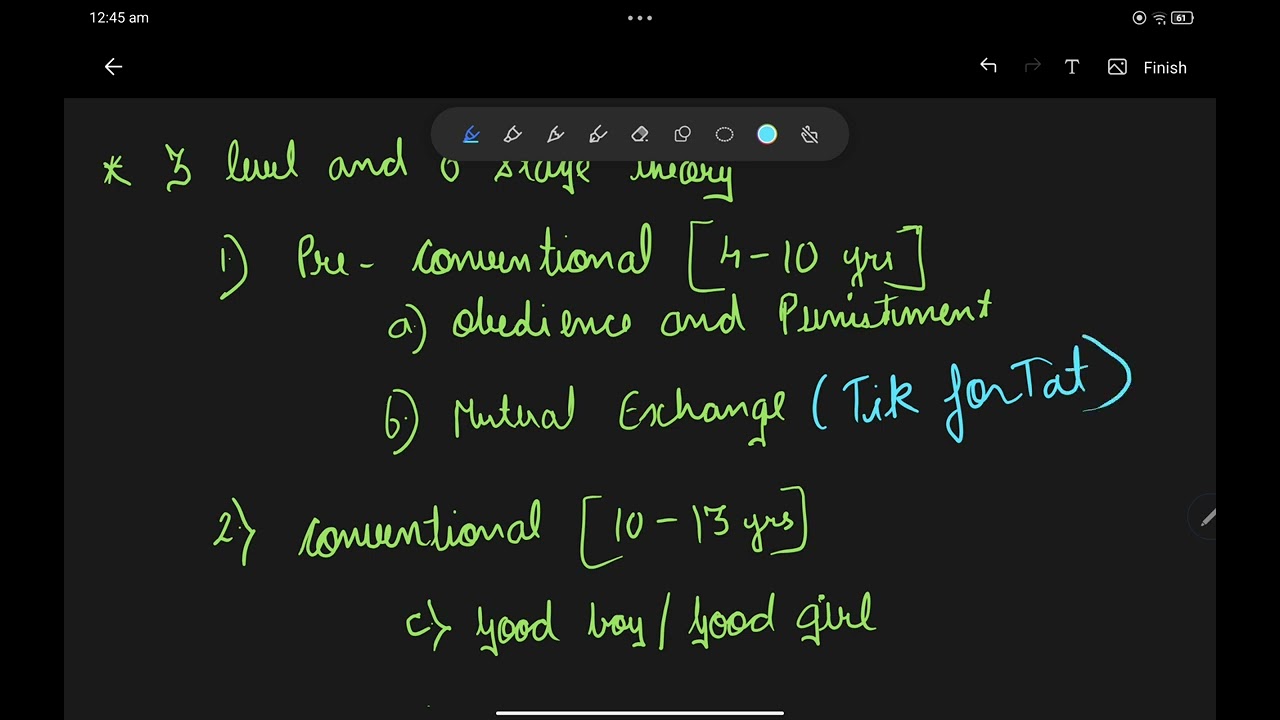 12:45 am
61
T
Finish
* 3 level and 6 stage theory
1) Pre-conventional [4-10 yrs]
a) obedience and Punishment
b) Mutual Exchange (Tik for Tat)
2) conventional [10-13 yrs]
c) good boy/good girl